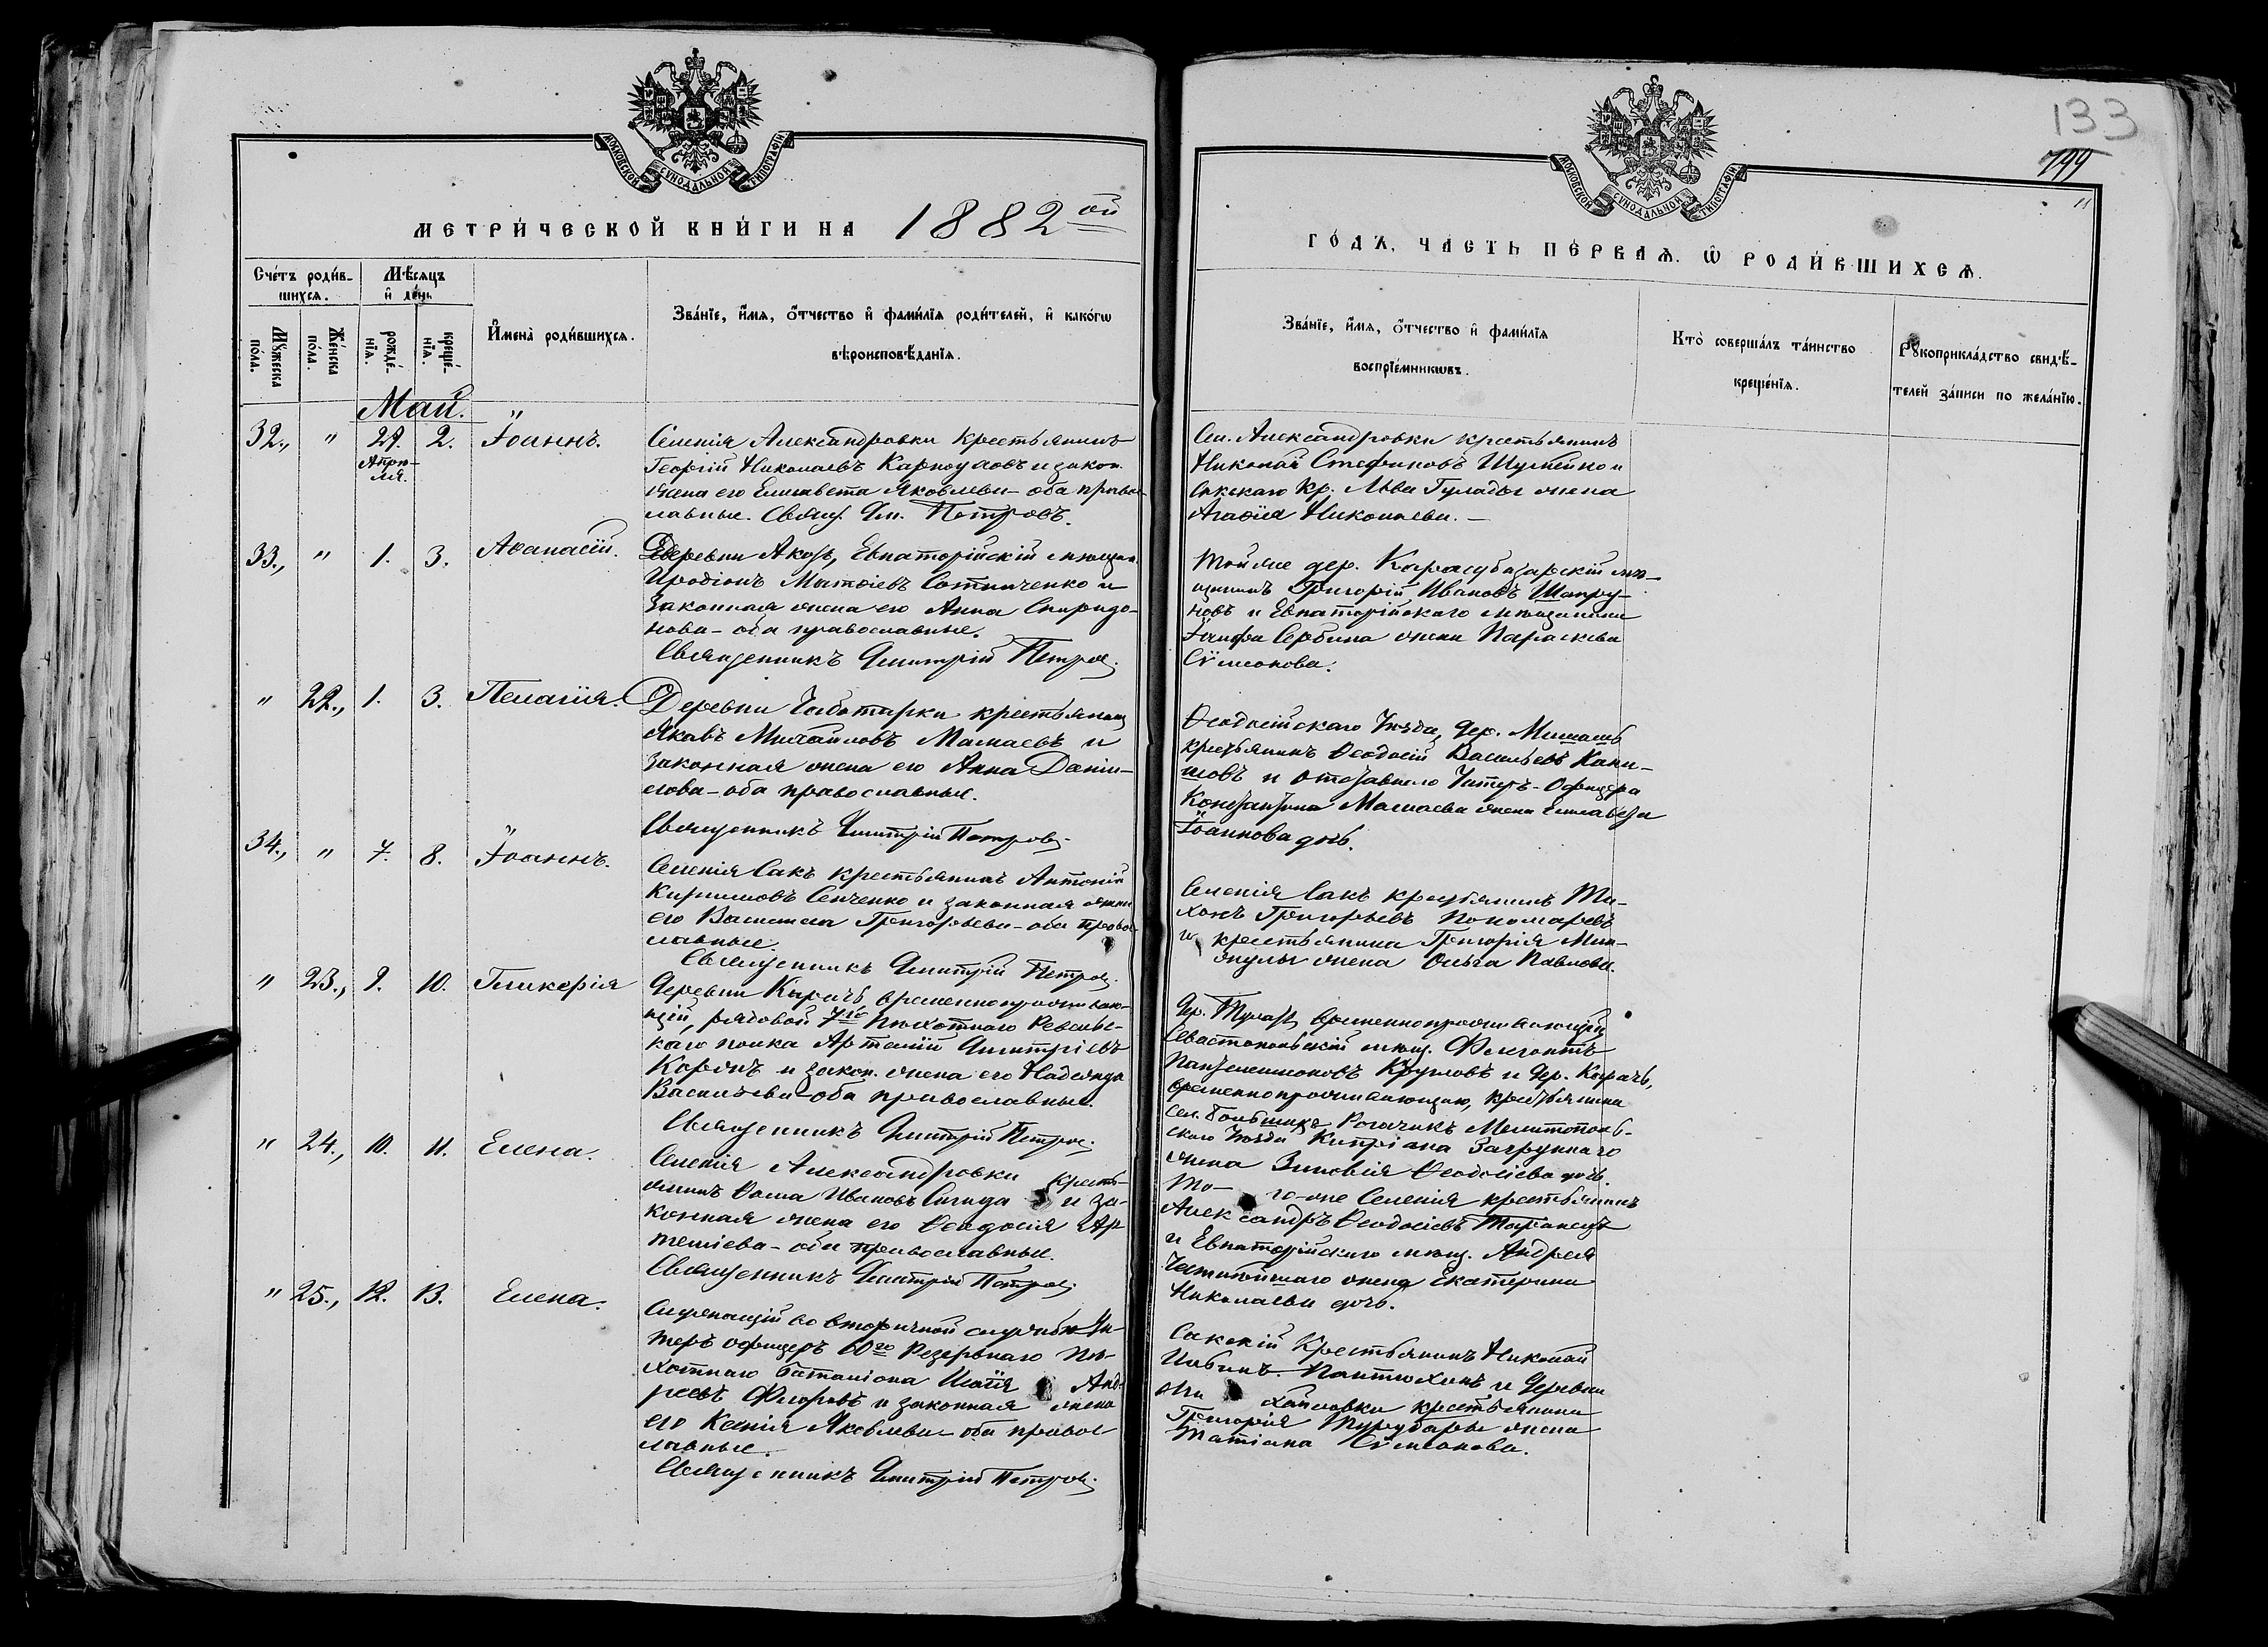 МОСКОВСКОЙ СѴНОДАЛЬНОЙ ТИПОГРАФІИ
МЕТРИ́ЧЕСКОЙ КНИ́ГИ НА 1882ой
Сче́тъ роди́в-
шихся.
Мѣ́сяцъ
и҆ де́нь
Мꙋ́жеска по́ла.
Же́нска по́ла.
рожде́-
нїѧ.
креще́-
нїѧ.
И҆мена̀ роди́вшихсѧ.
Зва́нїе, и҆́мѧ, ѻ҆́тчество и҆ фами́лїѧ роди́телей, и҆ како́гѡ
вѣроисповѣ́данїѧ.
Май.
32., " 29. Апрѣ-
ля. 2. Іоаннъ.
Селенія Александровки Крестьянинъ
Георгій Николаевъ Карноуховъ и закон.
жена его Елисавета Яковлева - оба право-
славные. Свящ. Дм. Петровъ.
33., " 1. 3. Аѳанасій.
Деревни Акозъ, Евпаторійскій мѣщан.
Иродіонъ Матѳіевъ Сотниченко и
Законная жена его Анна Спиридо-
нова - оба православные.
Священникъ Димитрій Петров.
" 22., 1. 3. Пелагія.
Деревни Чеботарки крестьянинъ
Яковъ Михайловъ Мамаевъ и
Законная жена его Анна Даніи-
лова - оба православные.
Священникъ Димитрій Петров.
34., " 7. 8. Іоаннъ.
Селенія Сакъ крестьянинъ Антоній
Кирилловъ Сенченко и законная жена
его Василисса Григорьева - оба право-
славные.
Священникъ Димитрій Петров.
" 23., 9. 10. Гликерія
Деревни Карачъ временнопроживаю-
щій, рядовой 7го пѣхотнаго Ревель-
каго полка Артемій Димитріевъ
и закон. жена его Надежда
Васильева - оба православные.
Священникъ Димитрій Петров.
" 24., 10. 11. Елена.
Селенія Александровки кресть-
янинъ Ѳома Ивановъ и за-
конная жена его Ѳеодосія Ар-
темiева - оба православные.
Священникъ Димитрій Петров.
" 25., 12. 13. Елена.
Служащій во вторичной службѣ Ун-
теръ офицеръ 60го Резервнаго Пѣ-
хотнаго Баталіона Илія Анд-
реевъ и законная жена
его Ксенія Яковлева - оба право-
славные.
Священникъ Димитрій Петров.
133
799
11
МОСКОВСКОЙ СѴНОДАЛЬНОЙ ТИПОГРАФІИ
ГО́ДЪ, ЧАСТЬ ПЕ́РВАѦ, Ѡ҆ РОДИ́ВШИХСѦ.
Зва́нїе, и҆́мѧ, ѻ҆́тчество и҆ фами́лїѧ
воспрїе́мникѡвъ.
Кто̀ соверша́лъ та́инство
креще́нїѧ.
Рꙋкоприкла́дство свидѣ́-
телей за́писи по жела́нїю.
Сел. Александровки крестьянинъ
Николай Стефановъ Шулейко и
Сакскаго Кр. Льва Гулады жена
Агаѳія Николаева. -
Той же дер. Карасубазарскій мѣ-
щанинъ Григорій Ивановъ Шапру-
новъ и Евпаторійскаго мѣщанина
Сербина жена Параскева
Сѵмеонова.
Ѳеодосійскаго Уѣзда, дер.
крестьянинъ Ѳеодосій Васильевъ
и отставнаго Унтеръ-Офицера
Константина Мамаева жена Елисавета
Іоаннова дочь.
Селенія Сакъ крестьянинъ Ти-
хонъ Григорьевъ Пономаревъ
и крестьянина Григорія
жена Ольга Павлова.
Дер. временнопроживающій
Севастопольскій мѣщ.
Пантелеимоновъ Кругловъ и дер. Карачъ,
временнопроживающаго, крестьянина
Сел. Большихъ Рогачикъ Мелитополь-
скаго Уѣзда Кипріана
жена Зиновія Ѳеодосіева дочь.
То- го-же Селенія крестьянинъ
Александръ Ѳеодосіевъ Таранецъ
и Евпаторійскаго мѣщ. Андрея
жена Екатерина
Николаева дочь.
Сакскій Крестьянинъ Николай
Пантюхинъ и Деревни
крестьянина
Григорія жена
Татіана Сѵмеонова.